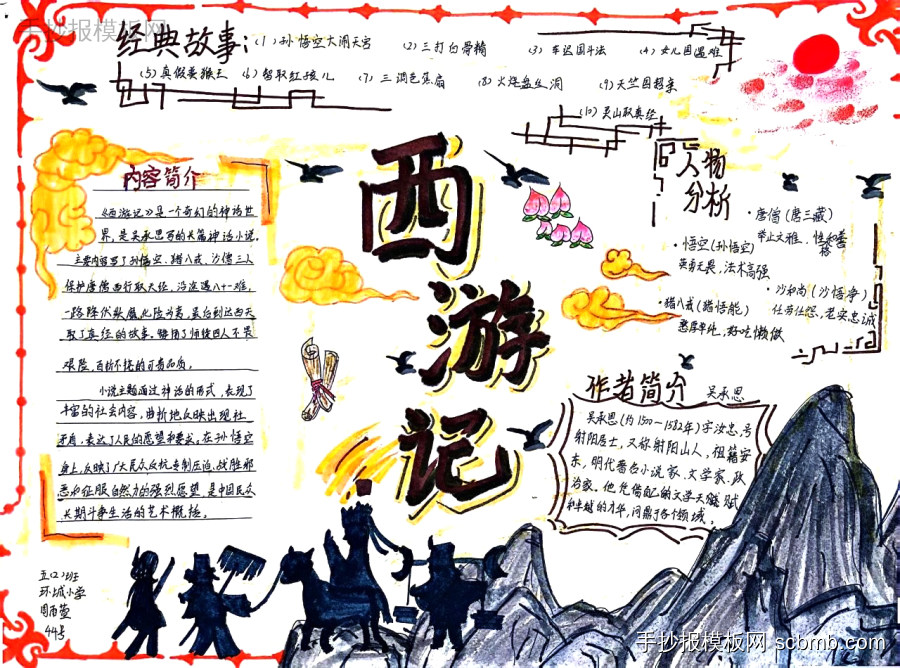 手抄报模板网
经典故事：(1)孙悟空大闹天宫 (2)三打白骨精 (3)车迟国斗法 (4)女儿国遇难
(5)真假美猴王 (6)智取红孩儿 (7)三调芭蕉扇 (8)火烧盘丝洞 (9)天竺国招亲
(10)灵山取真经
内容简介
《西游记》是一个奇幻的神话世
界，是吴承恩写的长篇神话小说。
主要内容写了孙悟空、猪八戒、沙僧三人
保护唐僧西行取大经，沿途遇八十一难，
一路降伏妖魔化险为夷，最后到达西天
取了真经的故事。师徒四人不畏
艰险，百折不挠的可贵品质。
小说主题通过神话的形式，表现了
丰富的社会内容，曲折地反映出现社
矛盾，表达了人民的愿望和要求。在孙悟空
身上，反映了广大民众反抗专制压迫，战胜邪
恶和征服自然力的强烈愿望，是中国民众
长期斗争生活的艺术概括。
西游记
人物分析
·唐僧(唐三藏)
举止文雅、性和善
·悟空(孙悟空)
英勇无畏，法术高强
·沙和尚(沙悟净)
任劳任怨，老实忠诚
·猪八戒(猪悟能)
好吃懒做
作者简介 吴承恩
吴承恩(约1500—1582年)字汝忠，号
射阳居士，又称射阳山人，祖籍安
东，明代著名小说家、文学家、政
治家。他凭借自己的文学天赋
和卓越的才华，问鼎于各个领域。
五(2)班
环城小学
周雨萱
44号
手抄报模板网 scbmb.com